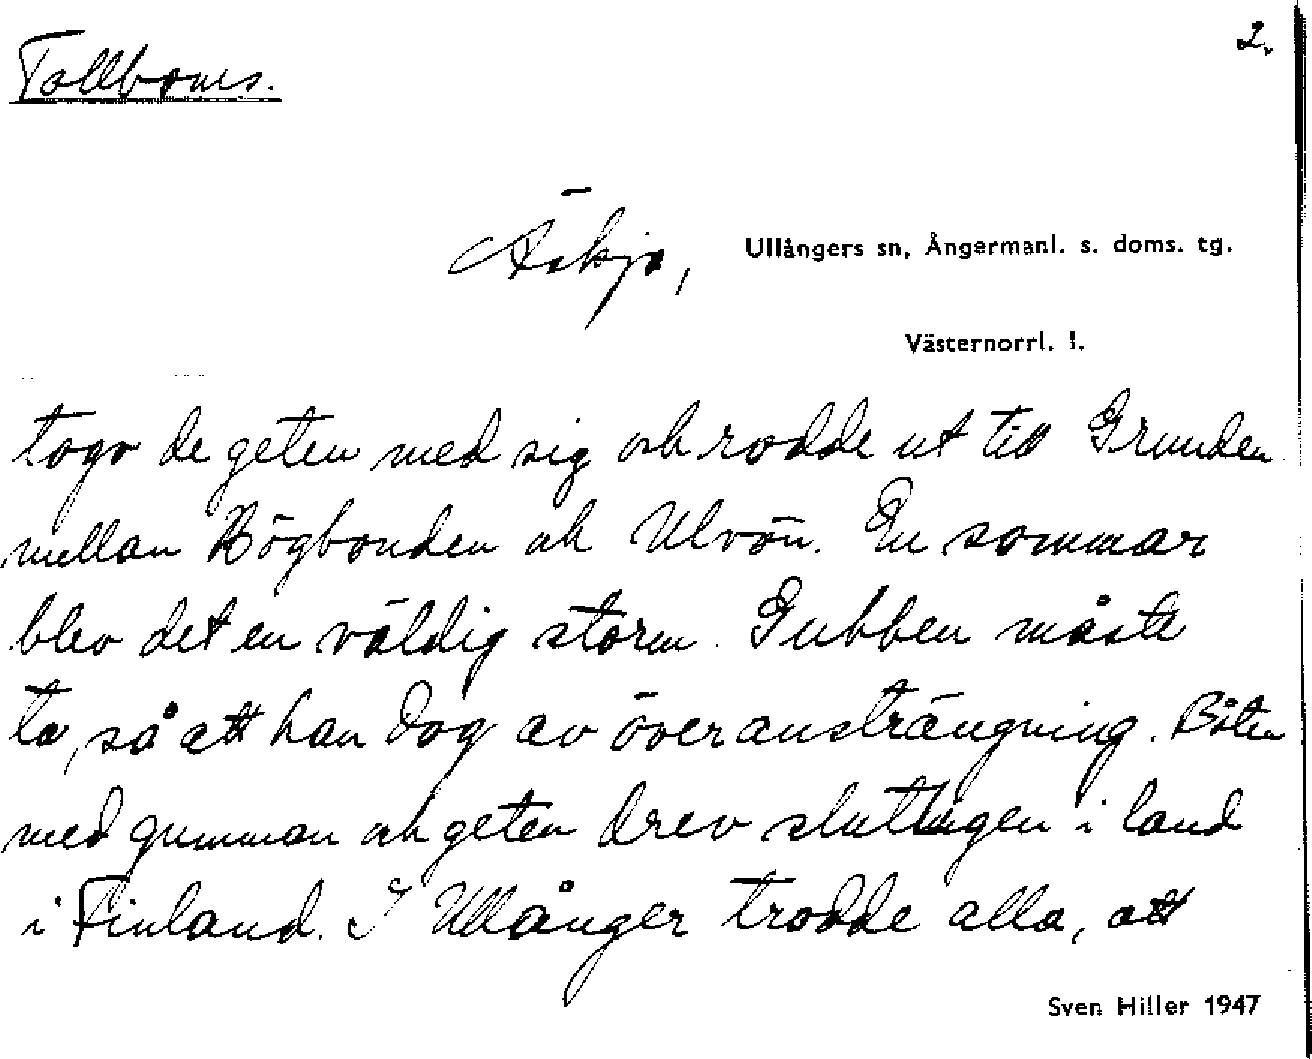 Tallboms.
2.
Äskja, Ullångers sn, Ångermanl. s. doms. tg.
Västernorrl. l.
togo de geten med sig och rodde ut till Grunden
mellan Högbonden och Ulvön. En sommar
blev det en väldig storm. Gubben måste
ro, så att han dog av överansträngning. Båten
med gumman och geten drev slutligen i land
i Finland. I Ullånger trodde alla, att
Sven Hiller 1947